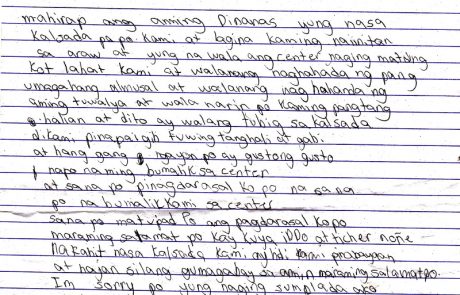 mahirap ang aming Dinanas yung nasa
kalsada pa po kami at lagina kaming naiinitan
sa araw at yung na wala ang center naging matulung
kot lahat kami at walanang naghahada ng pang
umagahang almusal at walanang nag hahanda ng
aming tuwalya at wala narin po kaming pangtang
halian at dito ay walang tubig sa kalsada
di kami pinapaligo tuwing tanghali at gabi
at hang gang ngayon po ay gustong gusto
napo naming bumalik sa center
at sana po pinagdarasal ko po na sana
po na bumalik kami sa center
sana po matupad Po ang pagdarasal ko po
maraming salamat po kay kuya iDDo at ticher noñe
na kahit nasa kalsada kami ay hdi kami
at hayan silang gumagabay sa amin maraming salamat po.
Im sorry po yung naging sumplada ako